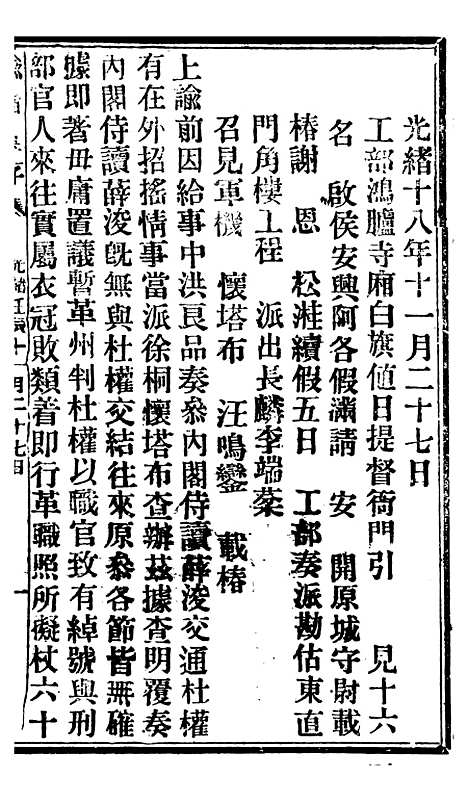 光緒十八年十一月二十七日
工部鴻臚寺廂白旗値日提督衙門引　見十六
名　啟侯安興阿各假滿請　安　開原城守尉載
椿謝　恩　松溎續假五日　工部奏派勘估東直
門角樓工程　派出長麟李端棻
召見軍機　懷塔布　汪鳴鑾　載椿
上諭前因給事中洪良品奏叅內閣侍讀薛浚交通杜權
有在外招搖情事當派徐桐懷塔布查辦茲據查明覆奏
內閣侍讀薛浚旣無與杜權交結往來原叅各節皆無確
據即著毋庸置議暫革州判杜權以職官致有綽號與刑
部官人來往實屬衣冠敗類着即行革職照所擬杖六十
光緒壬辰十一月二十七日　一